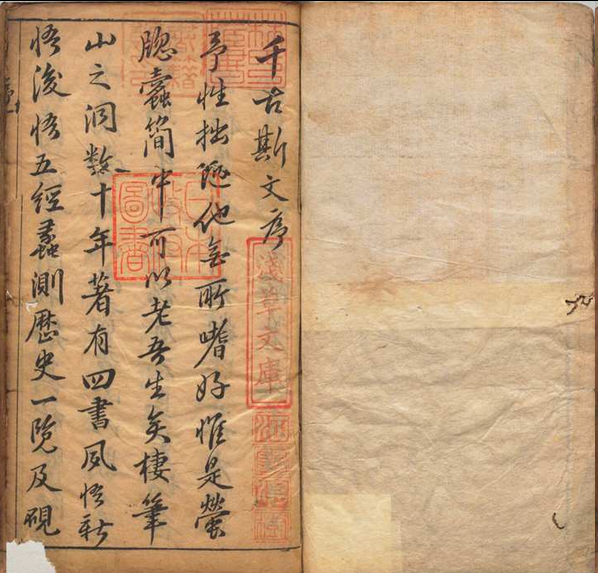 千古斯文序
予性拙陋他無所嗜好惟是螢
牕蠹簡中可以老吾生矣棲筆
山之洞數十年著有四書夙悟新
悟後悟五經蠡測歷史一覽及硯
淺草文庫
日本政府圖書